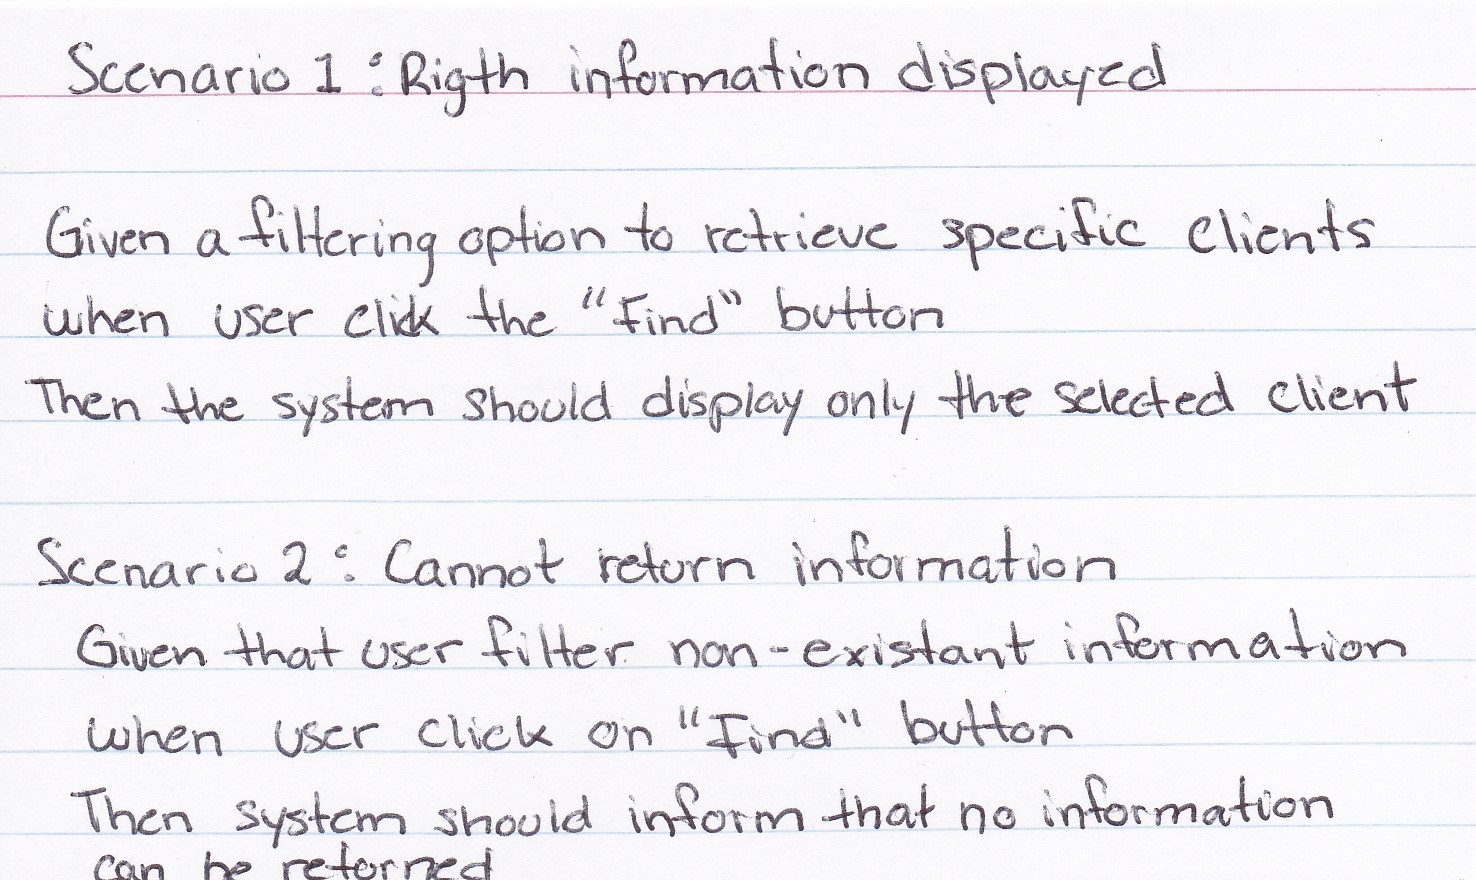 Scenario 1: Rigth information displayed
Given a filtering option to retrieve specific clients
when user click the "Find" button
Then the system should display only the selected client
Scenario 2: Cannot return information
Given that user filter non-existant information
when user click on "Find" button
Then system should inform that no information
can be retorned